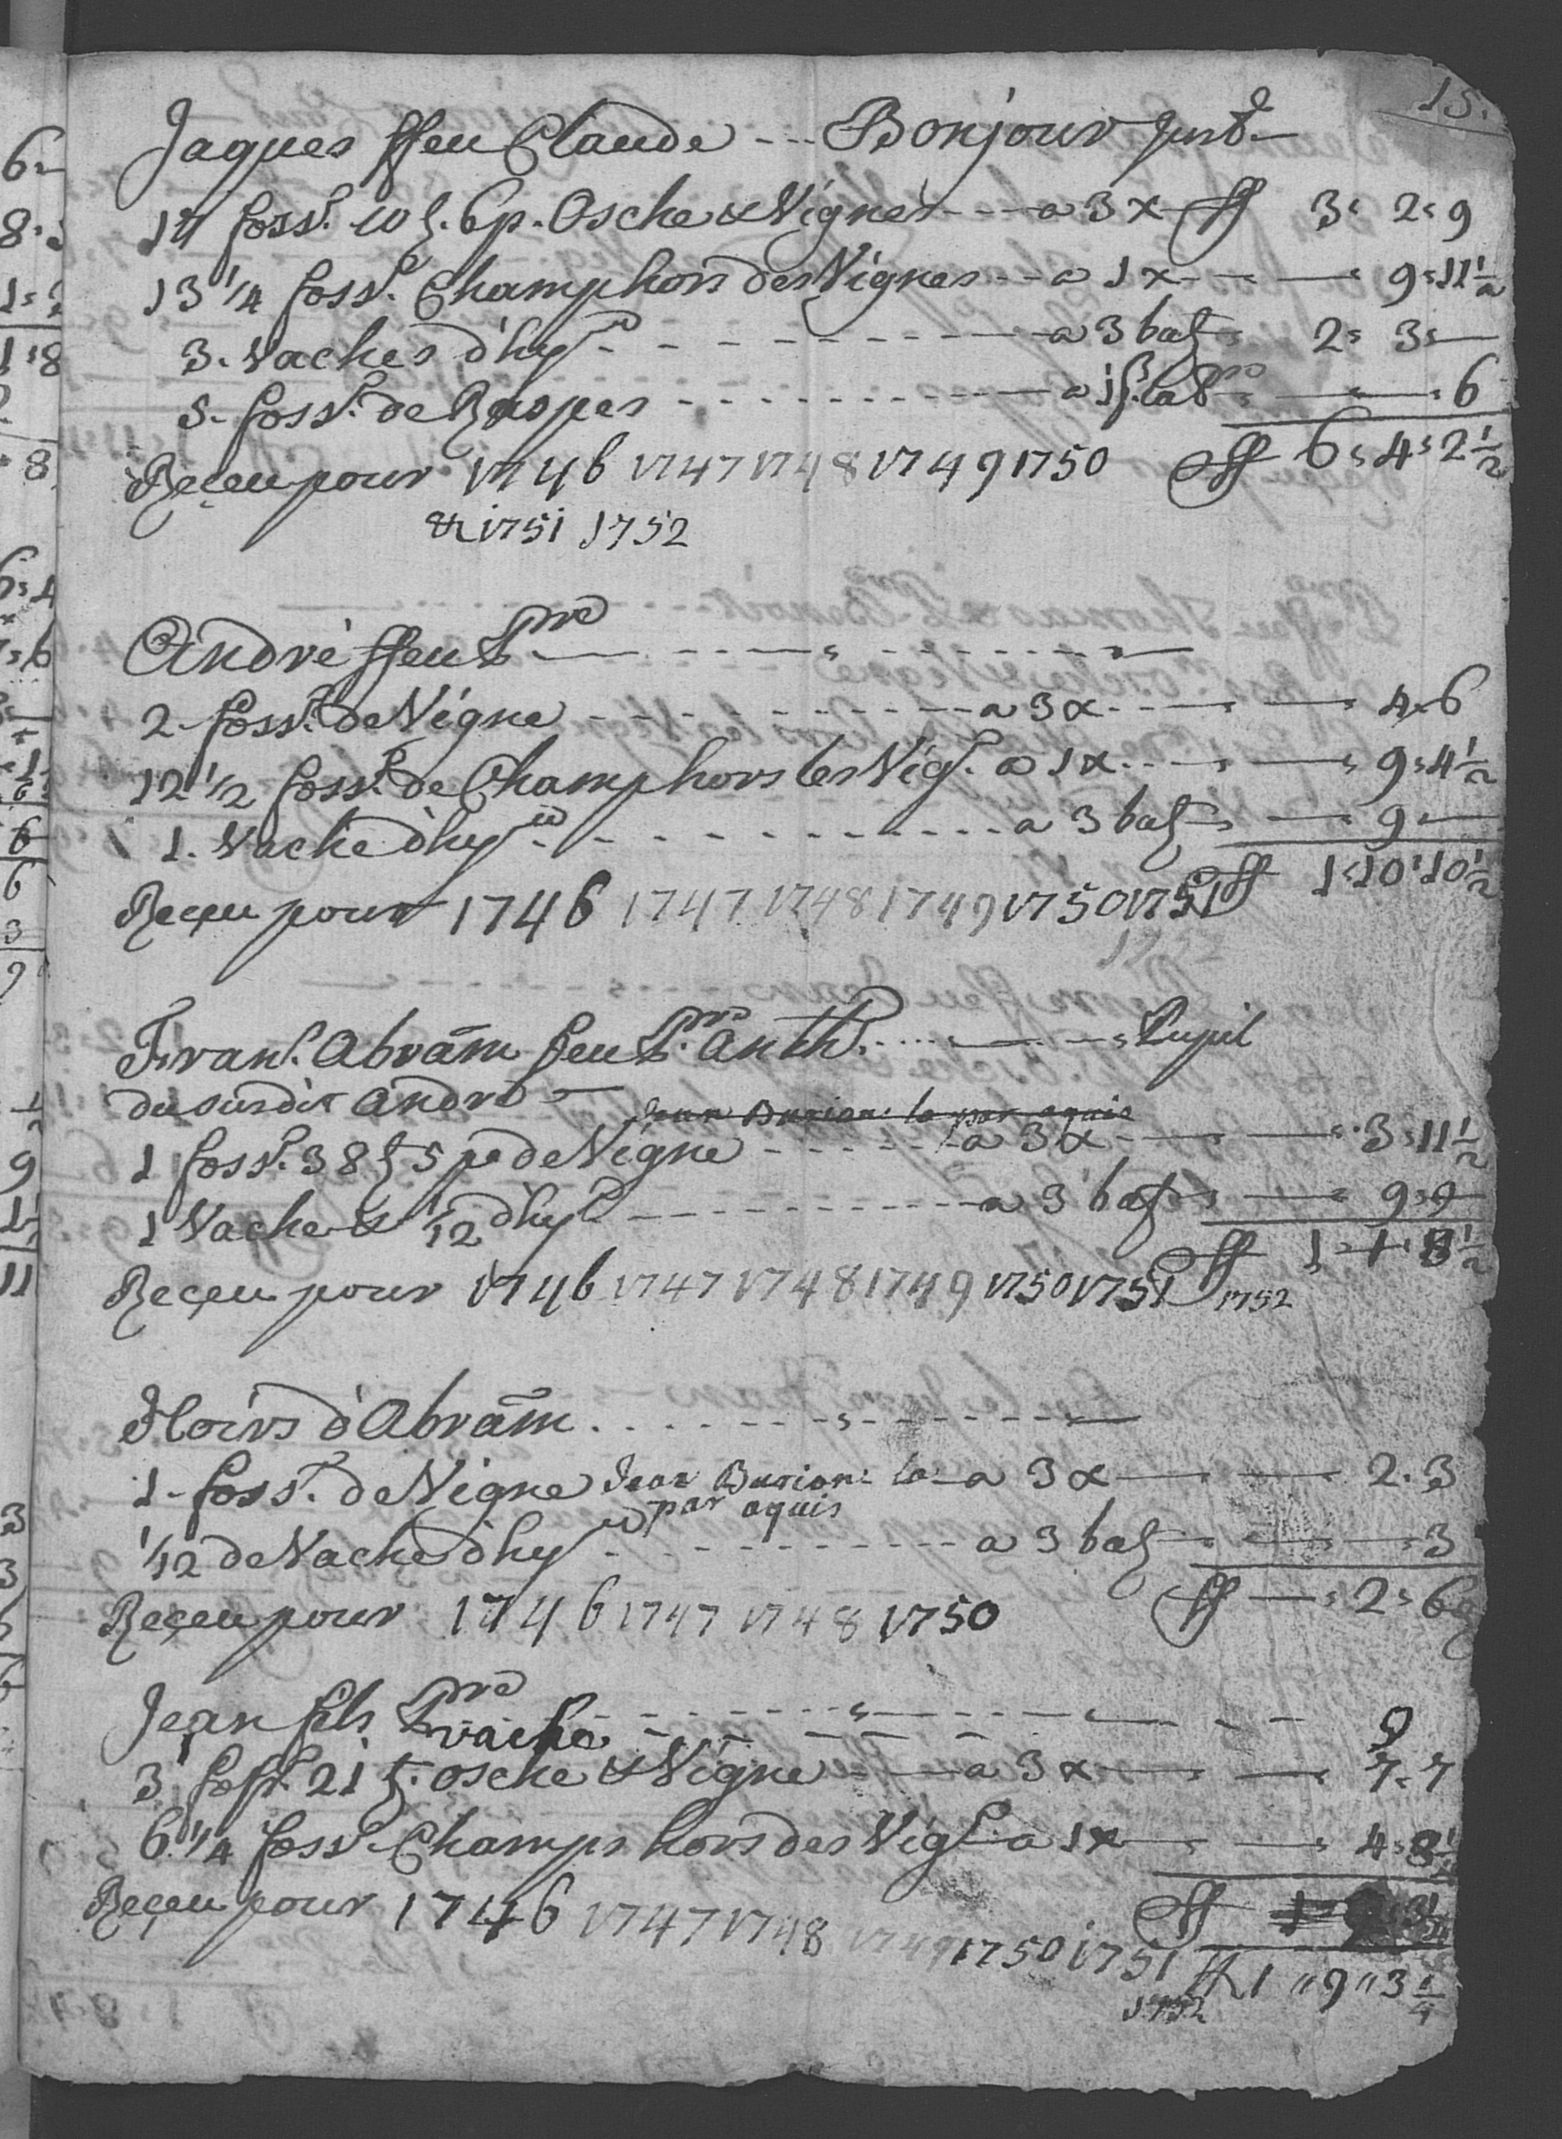 15.
Jaques ffeu Claude --- Bonjour Just.
17 foss.r 10 ʒ. 6 p. Osche & Vignes --- a 3 x ff 3 : 2 : 9
13 1/4 foss.r Champ hors des Vignes --- a 1 x --- 9 : 11 1/2
3. Vaches d'hy --- a 3 batz 2 : 3 : —
5. foss.r de Raspes --- 6
Reçeu pour 1746 1747 1748 1749 1750 ff 6 : 4 : 2 1/2
& 1751 1752
André ffeu P.re
2. foss.r de Vigne --- a 3 x --- 4 : 6
12 1/2 foss.r de Champ hors les Vig.s a 1 x --- 9 : 4 1/2
1. Vache d'hy --- a 3 batz --- 9 —
Reçeu pour 1746 1747 1748 1749 1750 1751 ff 1 : 10 : 10 1/2
1752
Fran.s Abrãm feu P.re Anth. --- Pupil
du susdit André —
Jean Burion: la par aquis
1 foss.r 38 ʒ 5 p de Vigne --- a 3 x --- 3 : 11 1/2
1 Vache & 1/12 d'hy --- a 3 batz --- 9 : 9
Reçeu pour 1746 1747 1748 1749 1750 1751 ff 1 : 1 : 8 1/2
1752
Hoirs d'Abrãm
1. foss.r de Vigne Jean Burion: la a 3 x --- 2 : 3
par aquis
1/12 de Vache d'hy --- a 3 batz --- 3
Reçeu pour 1746 1747 1748 1750 ff — : 2 : 6
Jean fils P.re
1 vache --- 9
3 foss.r 21 ʒ. Osche & Vigne --- a 3 x --- 7 : 7
6 1/4 foss.r Champs hors des Vig.s a 1 x --- 4 : 8 1/4
Reçeu pour 1746 1747 1748 1749 1750 1751 ff
1752 ff 1 " 9 " 3 1/4